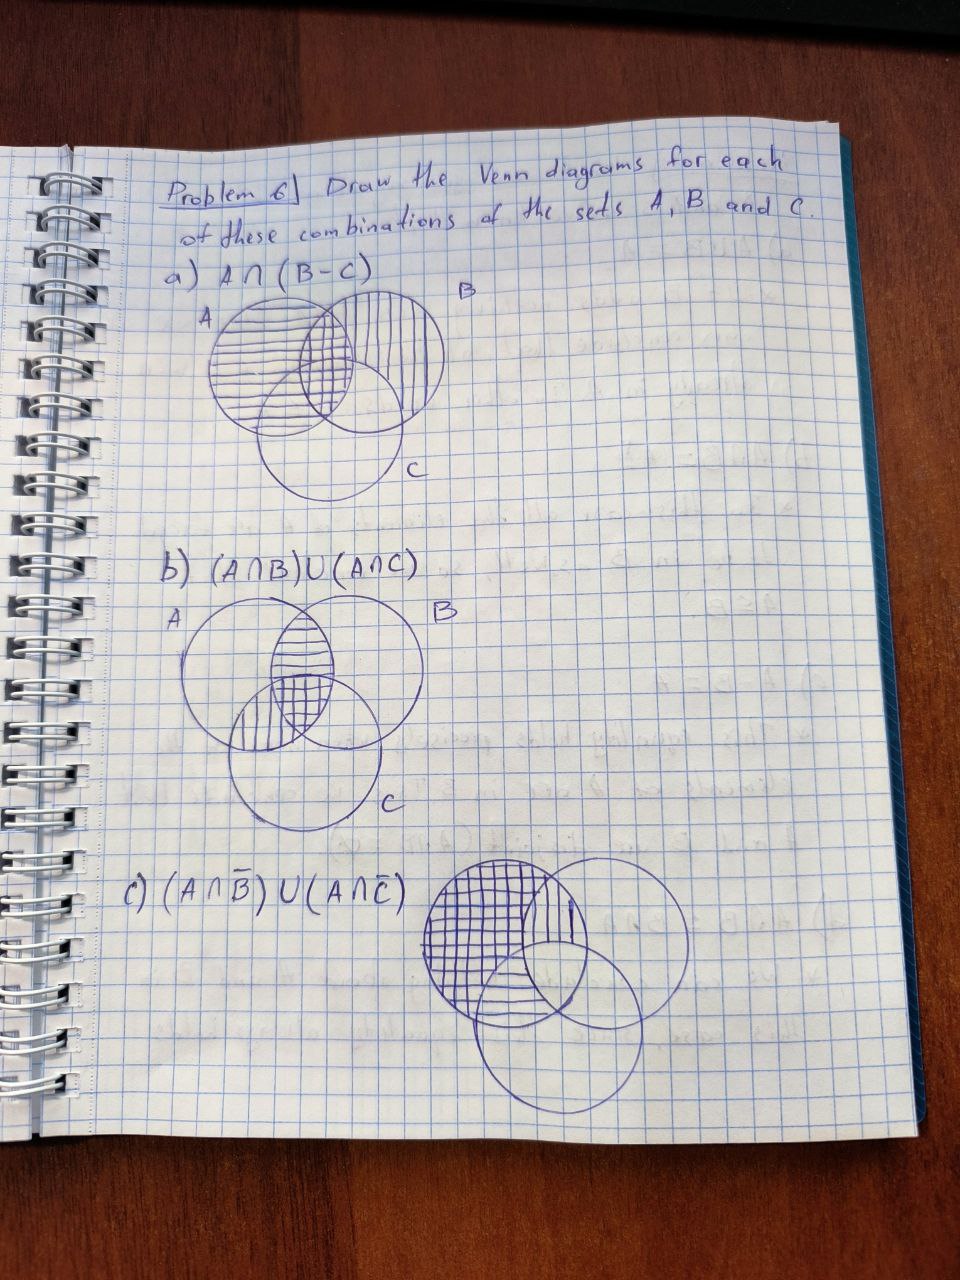 Problem 6] Draw the Venn diagrams for each
of these combinations of the sets A, B and C.
a) A∩(B-C)
A
B
C
b) (A∩B)∪(A∩C)
A
B
C
c) (A∩B̅)∪(A∩C̅)